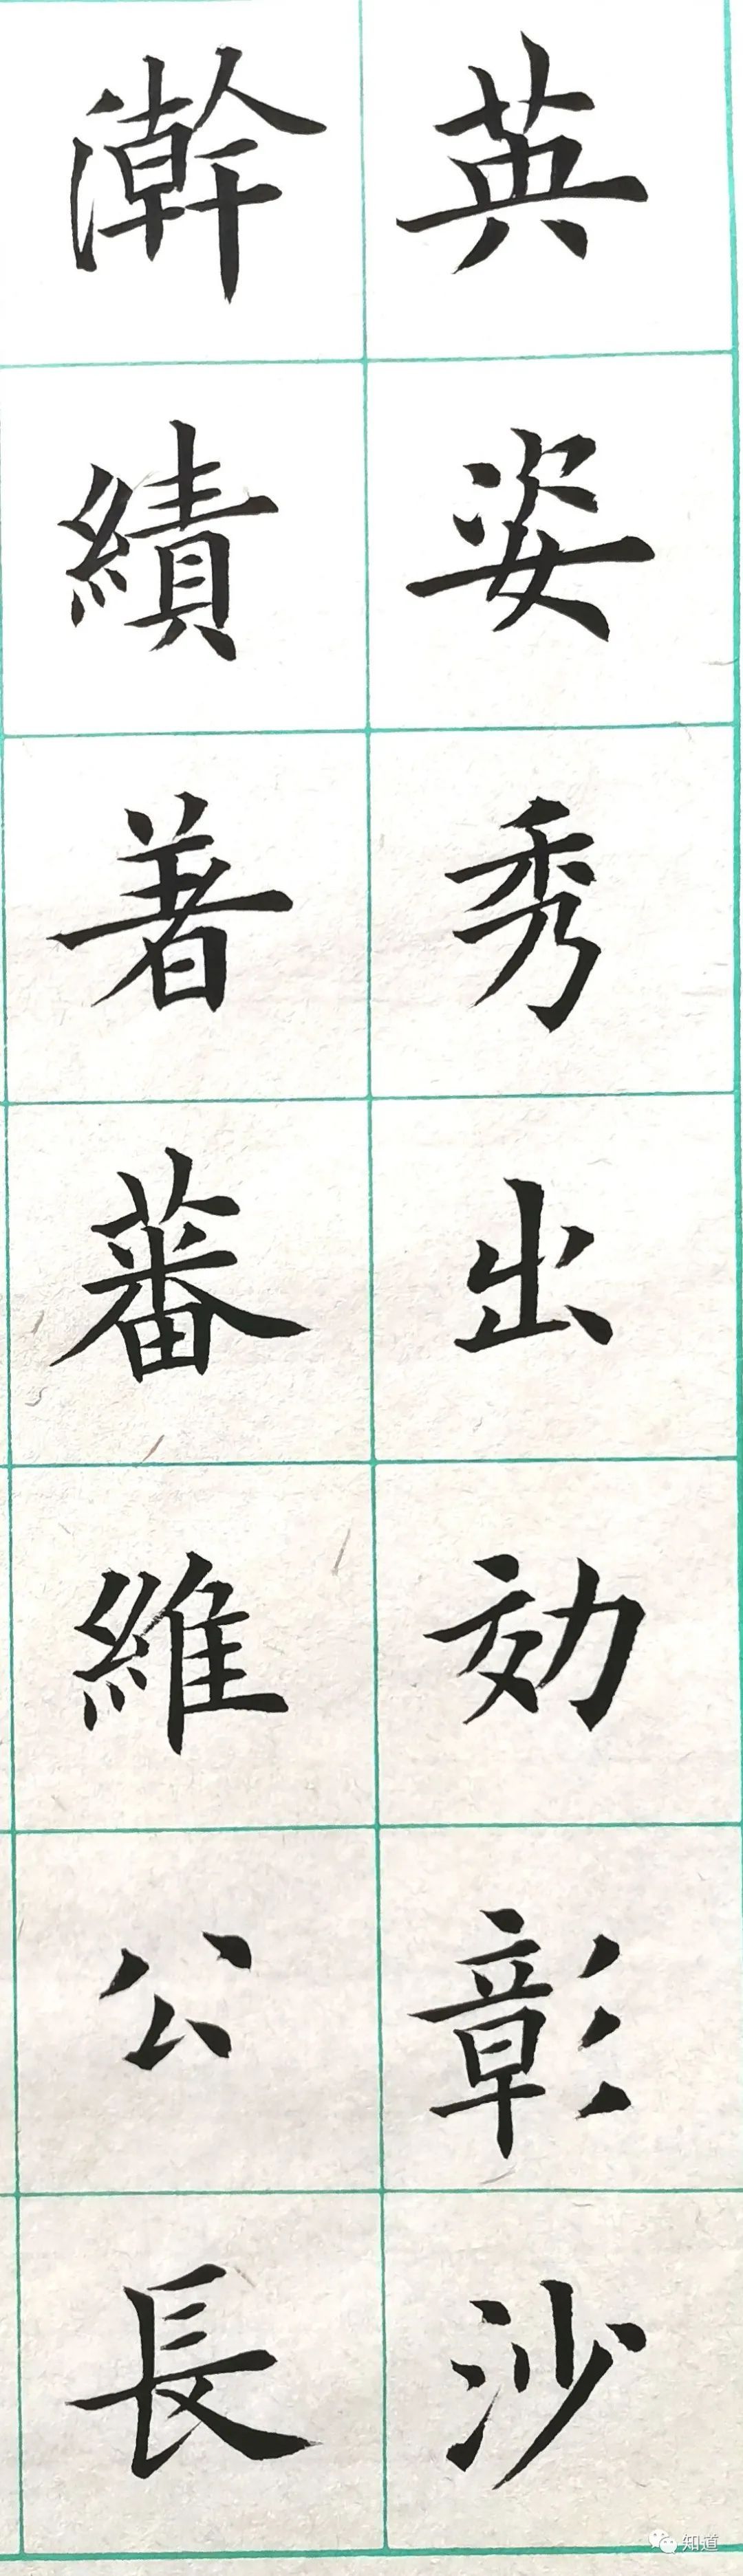 英姿秀出効彰沙
澣績著蕃維公長
知道